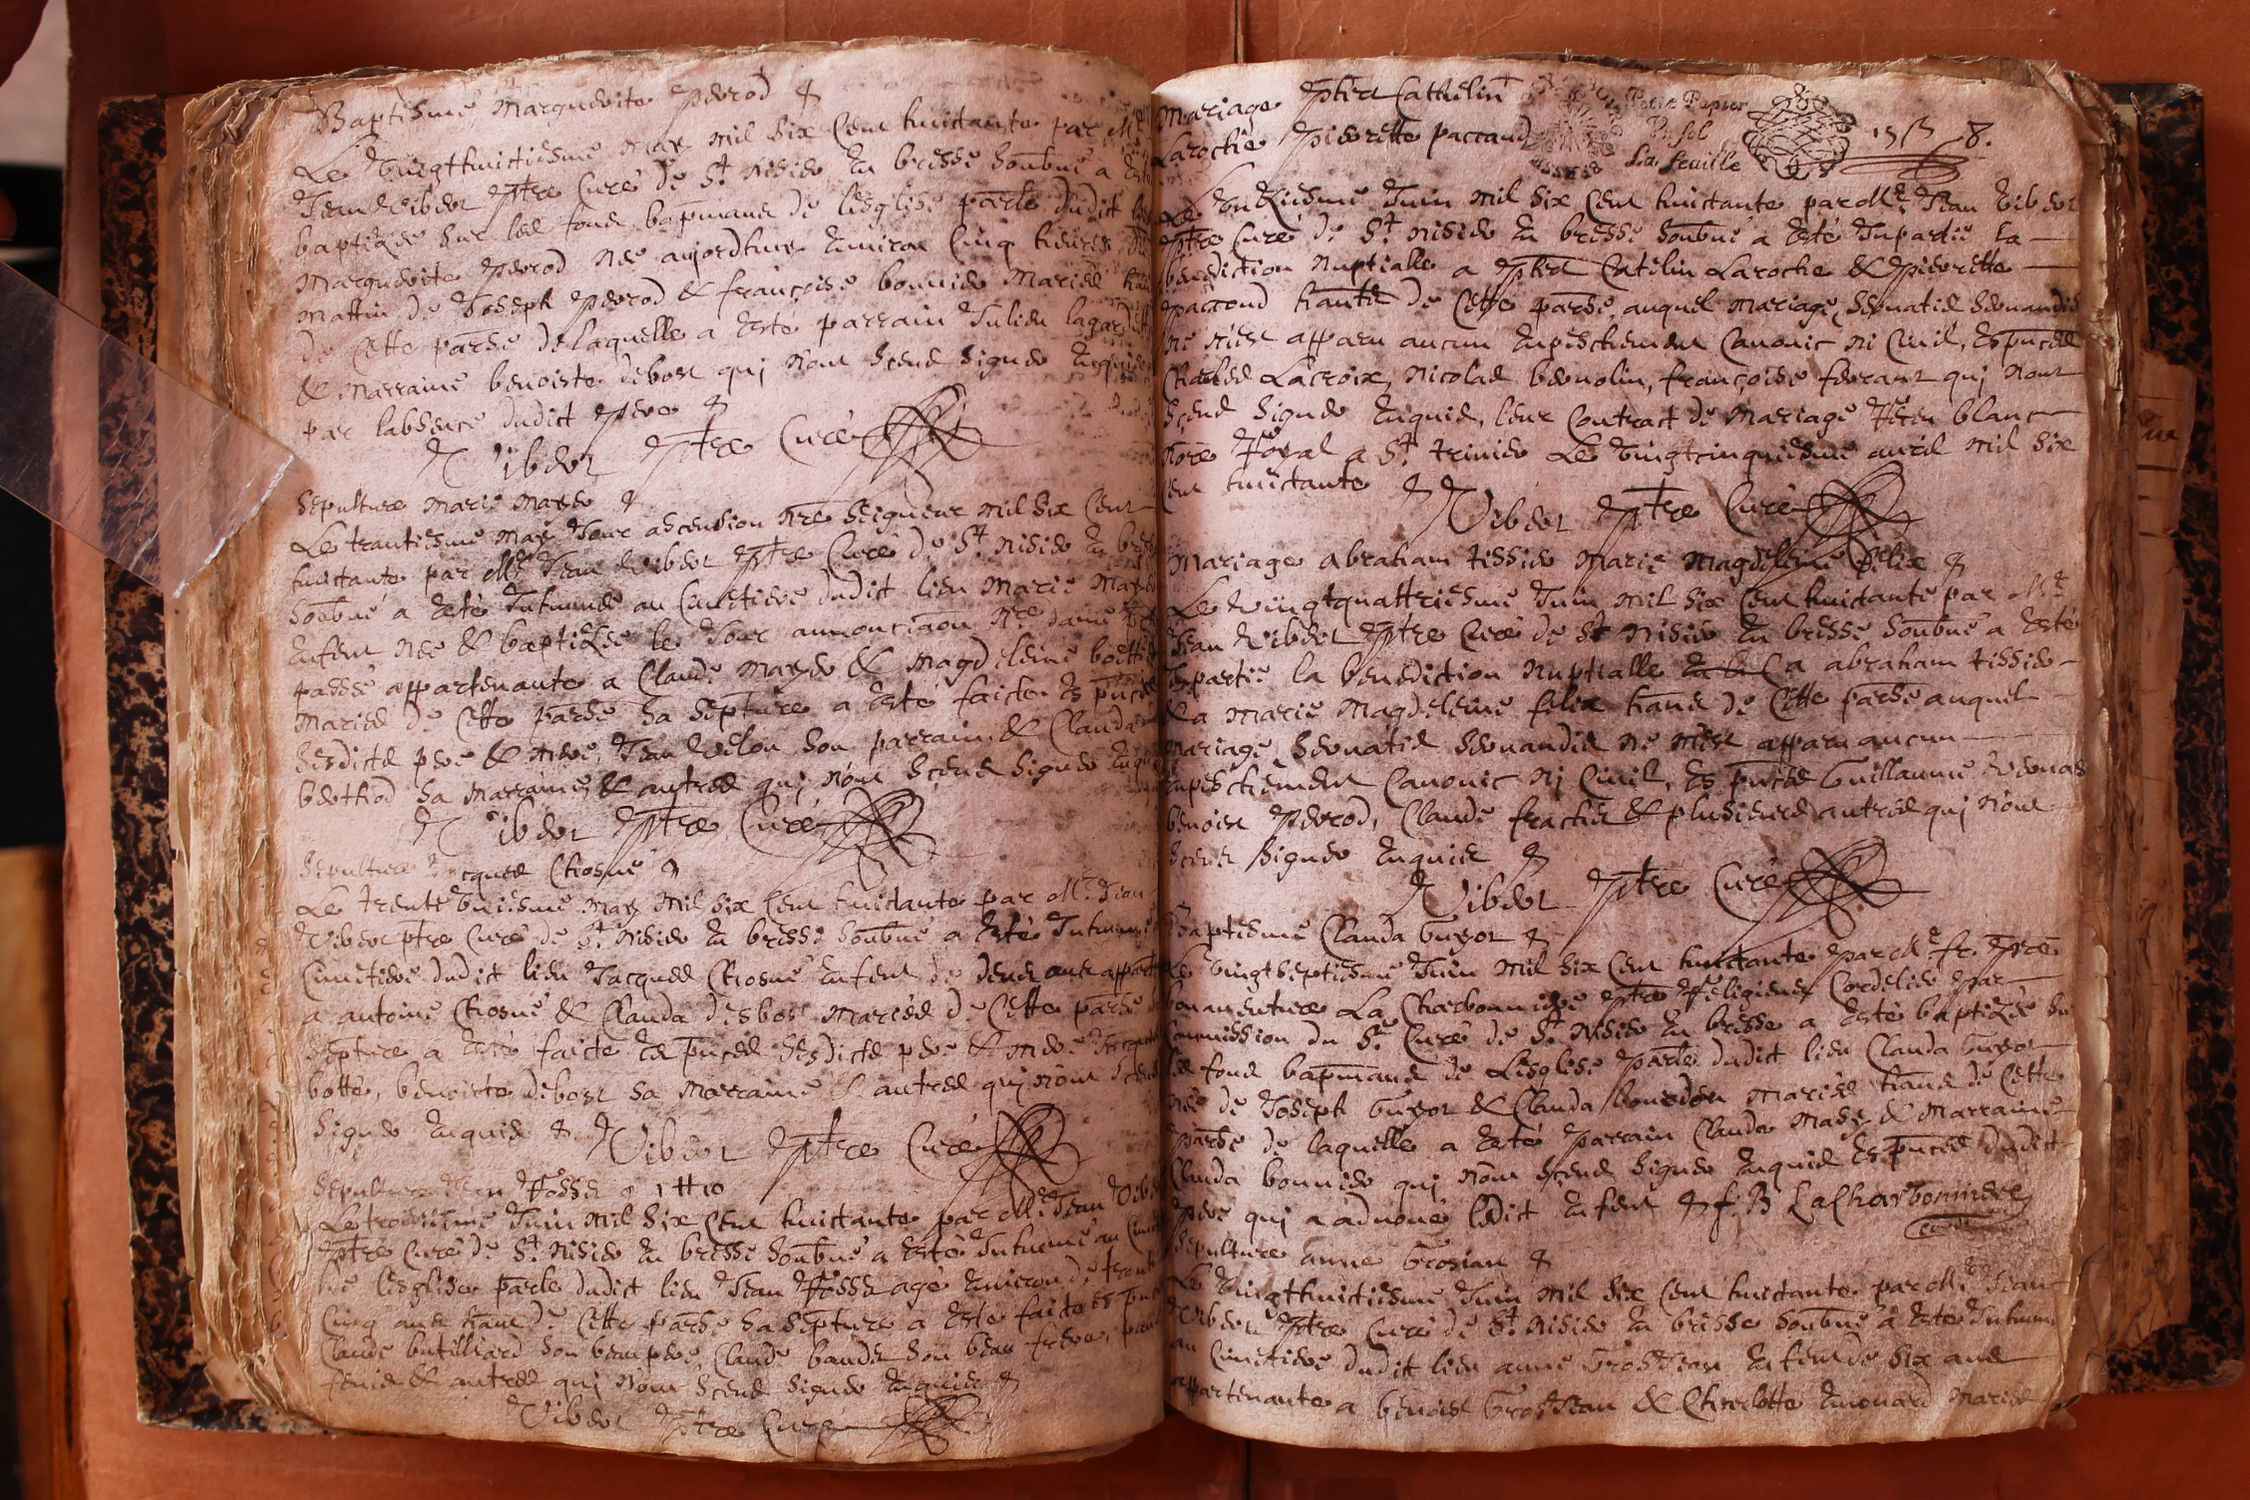 Baptisme Marguerite Perrod
Le vingthuictiesme may mil six cent huictante par Mre
Jean Vibert ptre Curé de St Nisier en bresse soubné a esté
baptizée sur les fons bapmaux de lesglise parle dudict lieu
Marguerite Perrod née aujordhuy environ cinq heures du
mattin de Joseph Perrod & françoise bonnier Mariés
de Cette parse de laquelle a esté parrain Julien
& Marraine benoiste debost quj n'ont sceus signer enquis
par labsence dudict Pere
Vibert ptre Curé
Sepulture Marie
Le trantiesme may Jour ascension nre seigneur mil six Cent
huictante par Mre Jean Vibert ptre Curé de St Nisier en bresse
soubné a esté Inhumée au Cimetiere dudict lieu Marie
Enfent née & baptizée le Jour annontiaon Nre dame
passée appartenante a Claude & Magdeleine
Mariés de Cette parse sa septure a esté faicte es pnces
sesdicts pere & mere, Jean son parrain & Clauda
berthod sa Marraine, & autres quj n'ont sceus signer enquis
Vibert ptre Curé
Sepulture Jacques Chosne
Le trente uniesme may mil six Cent huictante par Mre Jean
Vibert ptre Curé de St Nisier en bresse soubné a esté Inhumé
Cimetiere dudict lieu Jacques Chosne enfent de deux ans appart
a antoine Chosne & Clauda desbost Mariés de Cette parse
septure a esté faicte es pnces sesdicts pere & mere Jacques
botte, benoiste debost sa Marraine & autres quj n'ont sceus
signer enquis Vibert ptre Curé
Sepulture Jean
Le troisiesme Juin mil six Cent huictante par Mre Jean Vibert
ptre Curé de St Nisier en bresse soubné a esté Inhumé au
de lesglise parle dudict lieu Jean agé environ de trante
Cinq ans hant de Cette parse sa septure a esté faicte es pnces
Claude butilliard son beaupere, Claude son beau frere,
& autres quj n'ont sceus signer enquis
Vibert ptre Curé
Mariage Phert Cathelin
Laroche Pierrette paccaud
Petit Papier
Un sol
La feuille
Le onziesme Juin mil six Cent huictante par Mre Jean Vibert
ptre Curé de St Nisier en bresse soubné a esté Impartie la
benediction nuptialle a Phert Catelin Laroche & Pierrette
paccoud hants de Cette parse, auquel Mariage, servatis servandis
ne s'est apparu aucun empeschement Canonic ni Civil, es pnces
Charles Lacroix, Nicolas, françoise quj n'ont
sceus signer enquis, leur Contract de Mariage Receu blanc
nore Royal a St trivier Le vingtcinquiesme avril mil six
Cent huictante Vibert ptre Curé
Mariage abraham tissier Marie Magdeleine felix
Le vingtquattriesme Juin mil six Cent huictante par Mre
Jean Vibert ptre Curé de St Nisier en bresse soubné a esté
Impartie la benediction nuptialle a abraham tissier
& a Marie Magdeleine felix hans de Cette parse auquel
Mariage, servatis servandis ne s'est apparu aucun
empeschement Canonic nj Civil, es pnces Guillaume
benoist Perrod, Claude & plusieurs autres quj n'ont
sceus signer enquis
Vibert ptre Curé
Baptisme Clauda Guyot
Le vingtseptiesme Juin mil six Cent huictante par Mre fr. Pre
bonaventure La Charbonniere ptre Religieux Cordelier par
Commission du Sr Curé de St Nisier en bresse a esté baptizée sur
les fons bapmaux de Lesglise parle dudict lieu Clauda Guyot
née de Joseph Guyot & Clauda Mariés hans de Cette
parse de laquelle a esté parrain Claude & Marraine
Clauda bonnier quj n'ont sceus signer enquis es pnces dudict
Pere quj a advoué ledict enfent f. B LaCharbonniere
Sepulture anne Grosjean
Le vingthuictiesme Juin mil six Cent huictante par Mre Jean
Vibert ptre Curé de St Nisier en bresse soubné a esté Inhumée
au Cimetiere dudict lieu anne Grosjean enfent de six ans
appartenante a benoist Grosjean & Charlotte Mariés